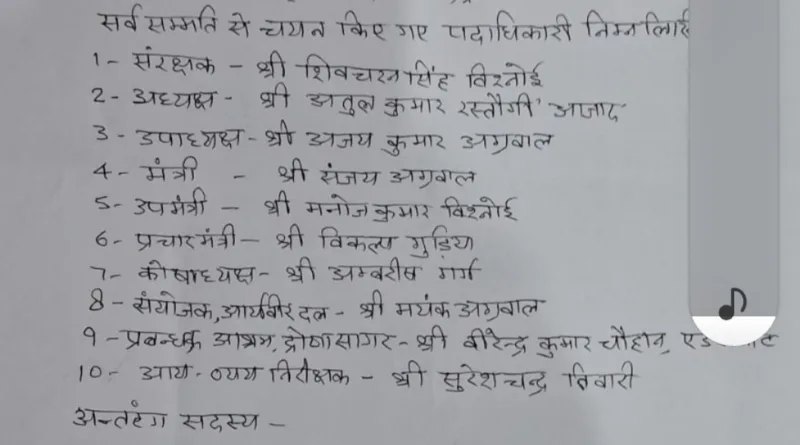 सर्व सम्मति से चयन किए गए पदाधिकारी निम्न
1- संरक्षक - श्री शिवचरन सिंह विश्नोई
2- अध्यक्ष - श्री अतुल कुमार रस्तौगी 'आजाद
3- उपाध्यक्ष - श्री अजय कुमार अग्रवाल
4- मंत्री - श्री संजय अग्रवाल
5- उपमंत्री - श्री मनोज कुमार विश्नोई
6- प्रचारमंत्री - श्री विकल्प गुड़िया
7- कोषाध्यक्ष - श्री अम्बरीष गर्ग
8- संयोजक, आर्यवीर दल - श्री मयंक अग्रवाल
9- प्रबन्धक आश्रम, द्रोणासागर - श्री वीरेन्द्र कुमार चौहान,
10- आय-व्यय निरीक्षक - श्री सुरेश चन्द्र तिवारी
अन्तरंग सदस्य -